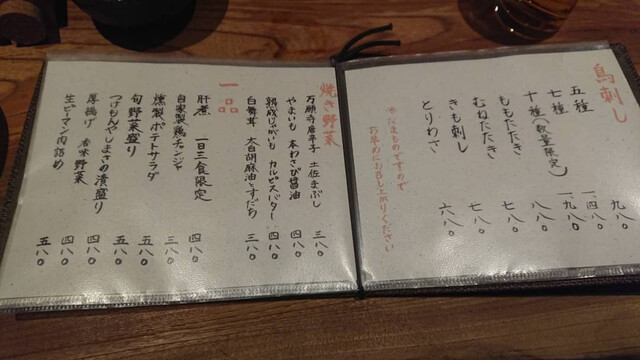 鳥刺し
五種 九八〇
七種 一四八〇
十種(数量限定) 一九八〇
ももたたき 八八〇
むねたたき 七八〇
きも刺し 七八〇
とりわさ 六八〇
※なまものですので
お早めにお召し上がりください
焼き野菜
万願寺唐辛子 土佐まぶし 三八〇
やまいも 本わさび醤油 四八〇
熟成じゃがいも カルピスバター 四八〇
白舞茸 太白胡麻油とすだち 三八〇
一品
肝煮 一日三食限定 四八〇
自家製鶏チャンジャ 三八〇
燻製ポテトサラダ 五八〇
旬野菜盛り 五八〇
つけもんやしまさの漬盛り 四八〇
厚揚げ 香味野菜 四八〇
生ピーマン肉詰め 五八〇